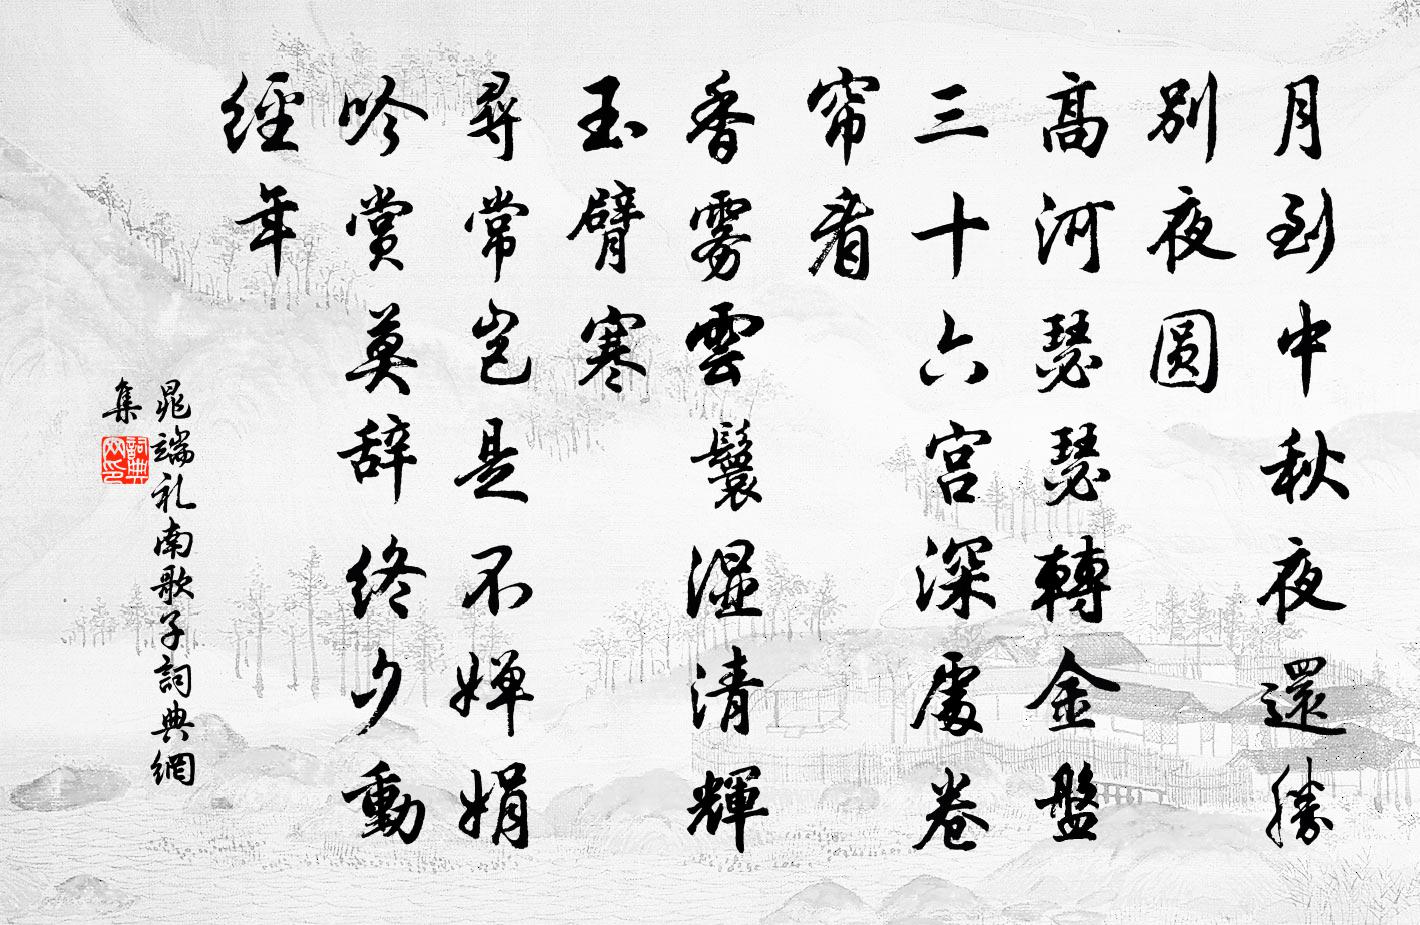 月到中秋夜還勝
别夜圆
高河瑟瑟轉金盤
三十六宫深處卷
帘看
香雾雲鬟湿清輝
玉臂寒
尋常岂是不婵娟
吟赏莫辞终夕動
經年
晁端礼南歌子詞典網
集
詞典
网印